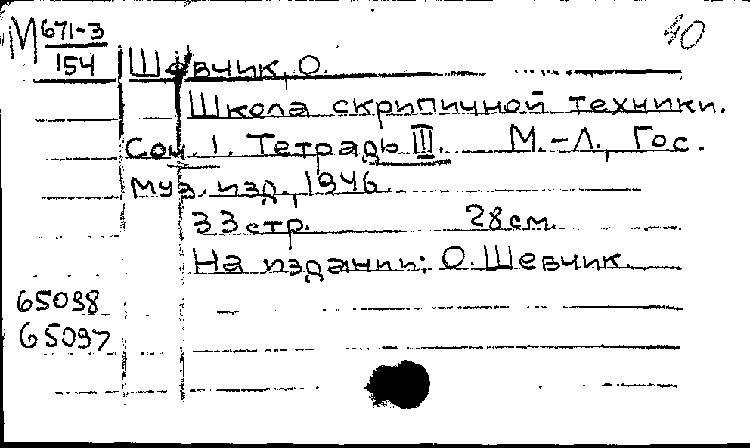 М 671-3
154
40
Шевчик, О.
Школа скрипичной техники.
Соч. 1. Тетрадь III. М.-Л., Гос.
муз. изд., 1946.
33 стр. 28 см.
На издании: О. Шевчик.
65038
65037